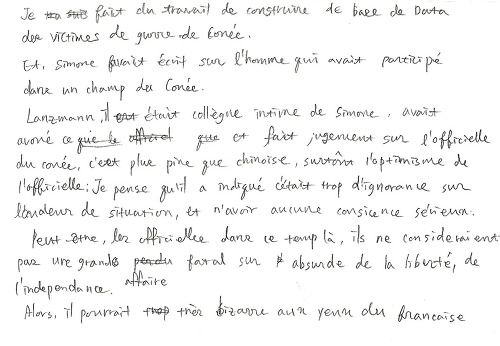 Je fait du travail de construire de base de Data
des victimes de guerre de Conée.
Et, Simone favait écrit sur l'homme qui avait participé
dans un champ des Conée.
Lanzmann, il était collègue intime de Simone, avait
avoné ce que le et fait jugement sur l'officielle
du conée, c'est plus pire que chinoise, surtout l'optimisme de
l'officielle. Je pense qu'il a indiqué c'était trop d'ignorance sur
de situation, et n'avoir aucune consience sérieux.
Peut être, les officielle dans ce temp là, ils ne consideraient
pas une grande affaire fatal sur absurde de la liberté, de
l'independance.
Alors, il pourrait très bizarre aux yeux du francaise